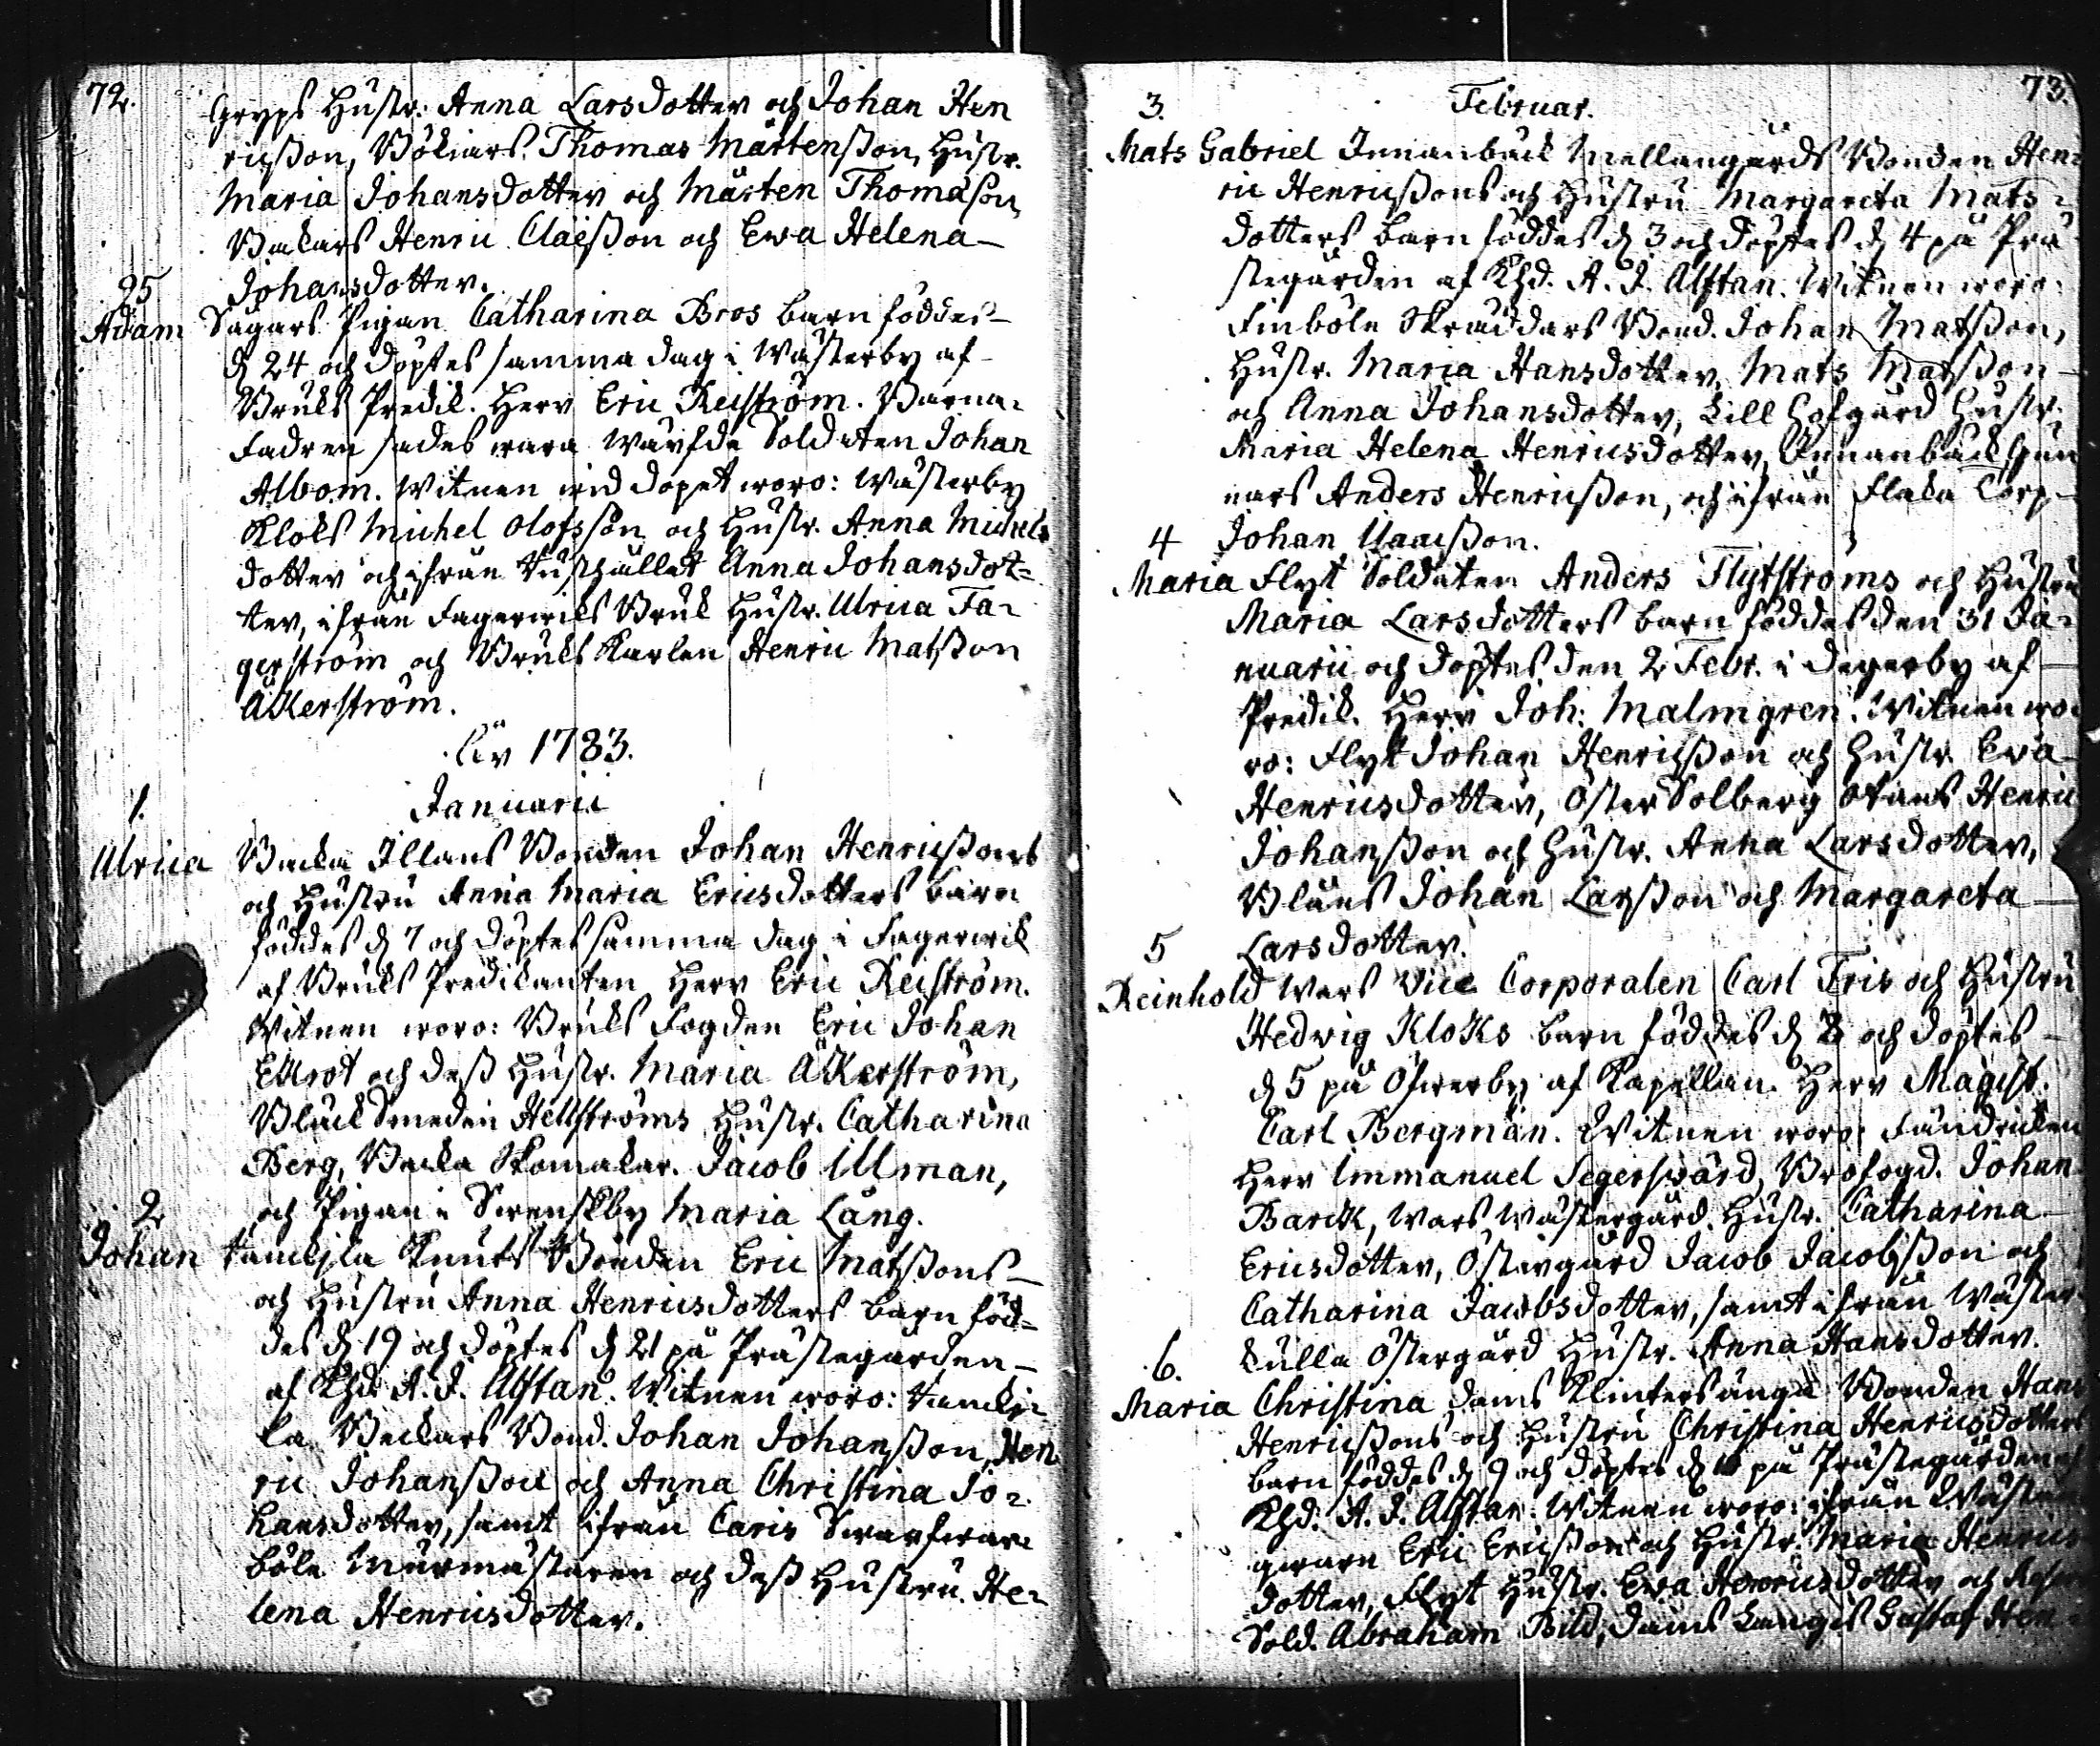 72.
Gryps Hustr: Anna Larsdotter och Johan Hen
ricsson, Bökars Thomas Mårtensson, Hustr.
Maria Johansdotter och Mårten Thomasson,
Backars Henric Claesson och Ewa Helena
Johansdotter.
25
Adam Sågars Pigan Catharina Bros barn föddes
d 24 och döptes samma dag i Wästerby af
Bruks Predik. Herr Eric Reiström. Barna-
fadren sades wara wärfde Soldaten Johan
Albom. Witnen wid dopet woro: Wästerby
Kloks Michel Olofsson och Hustr. Anna Michels
dotter och ifrån Rusthållet Anna Johansdot-
ter, ifrån Fagerwiks Bruk Hustr. Ulrica Fa-
gerström och Bruks Karlen Henric Matsson
Åkerström.
År 1783.
Januarii
1.
Ulrica Backa Illans Bonden Johan Henricssons
och Hustru Anna Maria Ericsdotters barn
föddes d 7 och döptes samma dag i Fagerwik
af Bruks Predikanten Herr Eric Reiström.
Witnen woro: Bruks Fogden Eric Johan
Ekrot och dess Hustr. Maria Åkerström,
Bläck Smeden Hellströms Hustr. Catharina
Berg, Backa Skomakar. Jacob Illman,
och Pigan i Swenskby Maria Lång.
2
Johan Knuts Bonden Eric Matssons
och Hustru Anna Henricsdotters barn föd-
des d 19 och döptes d 21 på Prästegården
af Khd. A. J. Alftan. Witnen woro:
la Backars Bond. Johan Johansson, Hen
ric Johansson och Anna Christina Jo-
hansdotter, samt ifrån Caris Swartwar
böle Murmästaren och dess Hustru He-
lena Henricsdotter.
73.
3. Februar.
Mats Gabriel Innanbäck Mellangårds Bonden Hen-
ric Henricssons och Hustru Margareta Mats-
dotters barn föddes d 3 och döptes d 4 på Prä
stegården af Khd. A. J. Alftan. Witnen woro:
Finböle Skräddars Bond. Johan Matsson,
Hustr. Maria Hansdotter, Mats Matsson
och Anna Johansdotter, Lill Hofgård Hustr.
Maria Helena Henricsdotter, Innanbäck Gun
nars Anders Henricsson, och ifrån Flaka Torp
4 Johan Isaacsson.
Maria Flyt Soldaten Anders Flytströms och Hustru
Maria Larsdotters barn föddes den 31 Ja-
nuarii och döptes den 2 Febr. i Degerby af
Predik. Herr Joh: Malmgren. Witnen wo-
ro: Flyt Johan Henricsson och Hustr. Ewa
Henricsdotter, Öster Solberg Ofans Henric
Johansson och Hustr. Anna Larsdotter,
Blåns Johan Larsson och Margareta
5 Larsdotter.
Reinhold Wars Vice Corporalen Carl Fris och Hustru
Hedwig Kloks barn föddes d 2 och döptes
d 5 på Öfwerby af Kapellan. Herr Magist.
Carl Bergman. Witnen woro: Fändricken
Herr Immanuel Segerswärd, Brofogd. Johan
Barck, Wars Wästergård Hustr. Catharina
Ericsdotter, Östergård Jacob Jacobsson och
Catharina Jacobsdotter, samt ifrån Wäster
6. kulla Östergård Hustr. Anna Hansdotter.
Maria Christina Dans Klintersänga Bonden Hans
Henricssons och Hustru Christina Henricsdotters
barn föddes d 9 och döptes d 10 på Prästegården af
Khd. A. J. Alftan. Witnen woro: ifrån Wäster
Eric Ericsson och Hustr. Maria Henrics
dotter, Flyt Hustr. Ewa Henricsdotter och
Sold. Abraham Bild, Dans Langis Gustaf Hen-